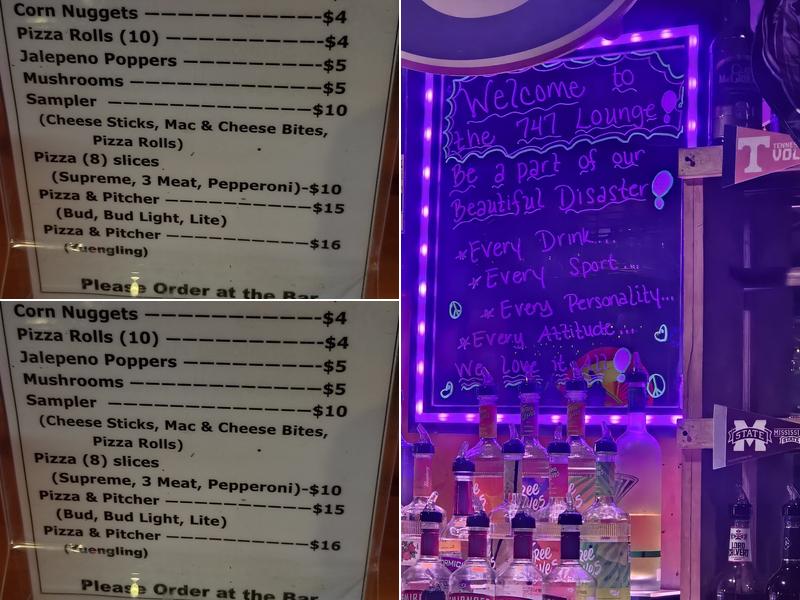 Corn Nuggets $4
Pizza Rolls (10) $4
Jalepeno Poppers $5
Mushrooms $5
Sampler $10
(Cheese Sticks, Mac & Cheese Bites,
Pizza Rolls)
Pizza (8) slices
(Supreme, 3 Meat, Pepperoni)-$10
Pizza & Pitcher $15
(Bud, Bud Light, Lite)
Pizza & Pitcher $16
(Yuengling)
Please Order at the Bar
Corn Nuggets $4
Pizza Rolls (10) $4
Jalepeno Poppers $5
Mushrooms $5
Sampler $10
(Cheese Sticks, Mac & Cheese Bites,
Pizza Rolls)
Pizza (8) slices
(Supreme, 3 Meat, Pepperoni)-$10
Pizza & Pitcher $15
(Bud, Bud Light, Lite)
Pizza & Pitcher $16
(Yuengling)
Please Order at the Bar
Welcome to
the 747 Lounge!
Be a part of our
Beautiful Disaster!
*Every Drink...
*Every Sport...
*Every Personality...
*Every Attitude...
We Love it all!
T
STATE
LORD
CALVERT